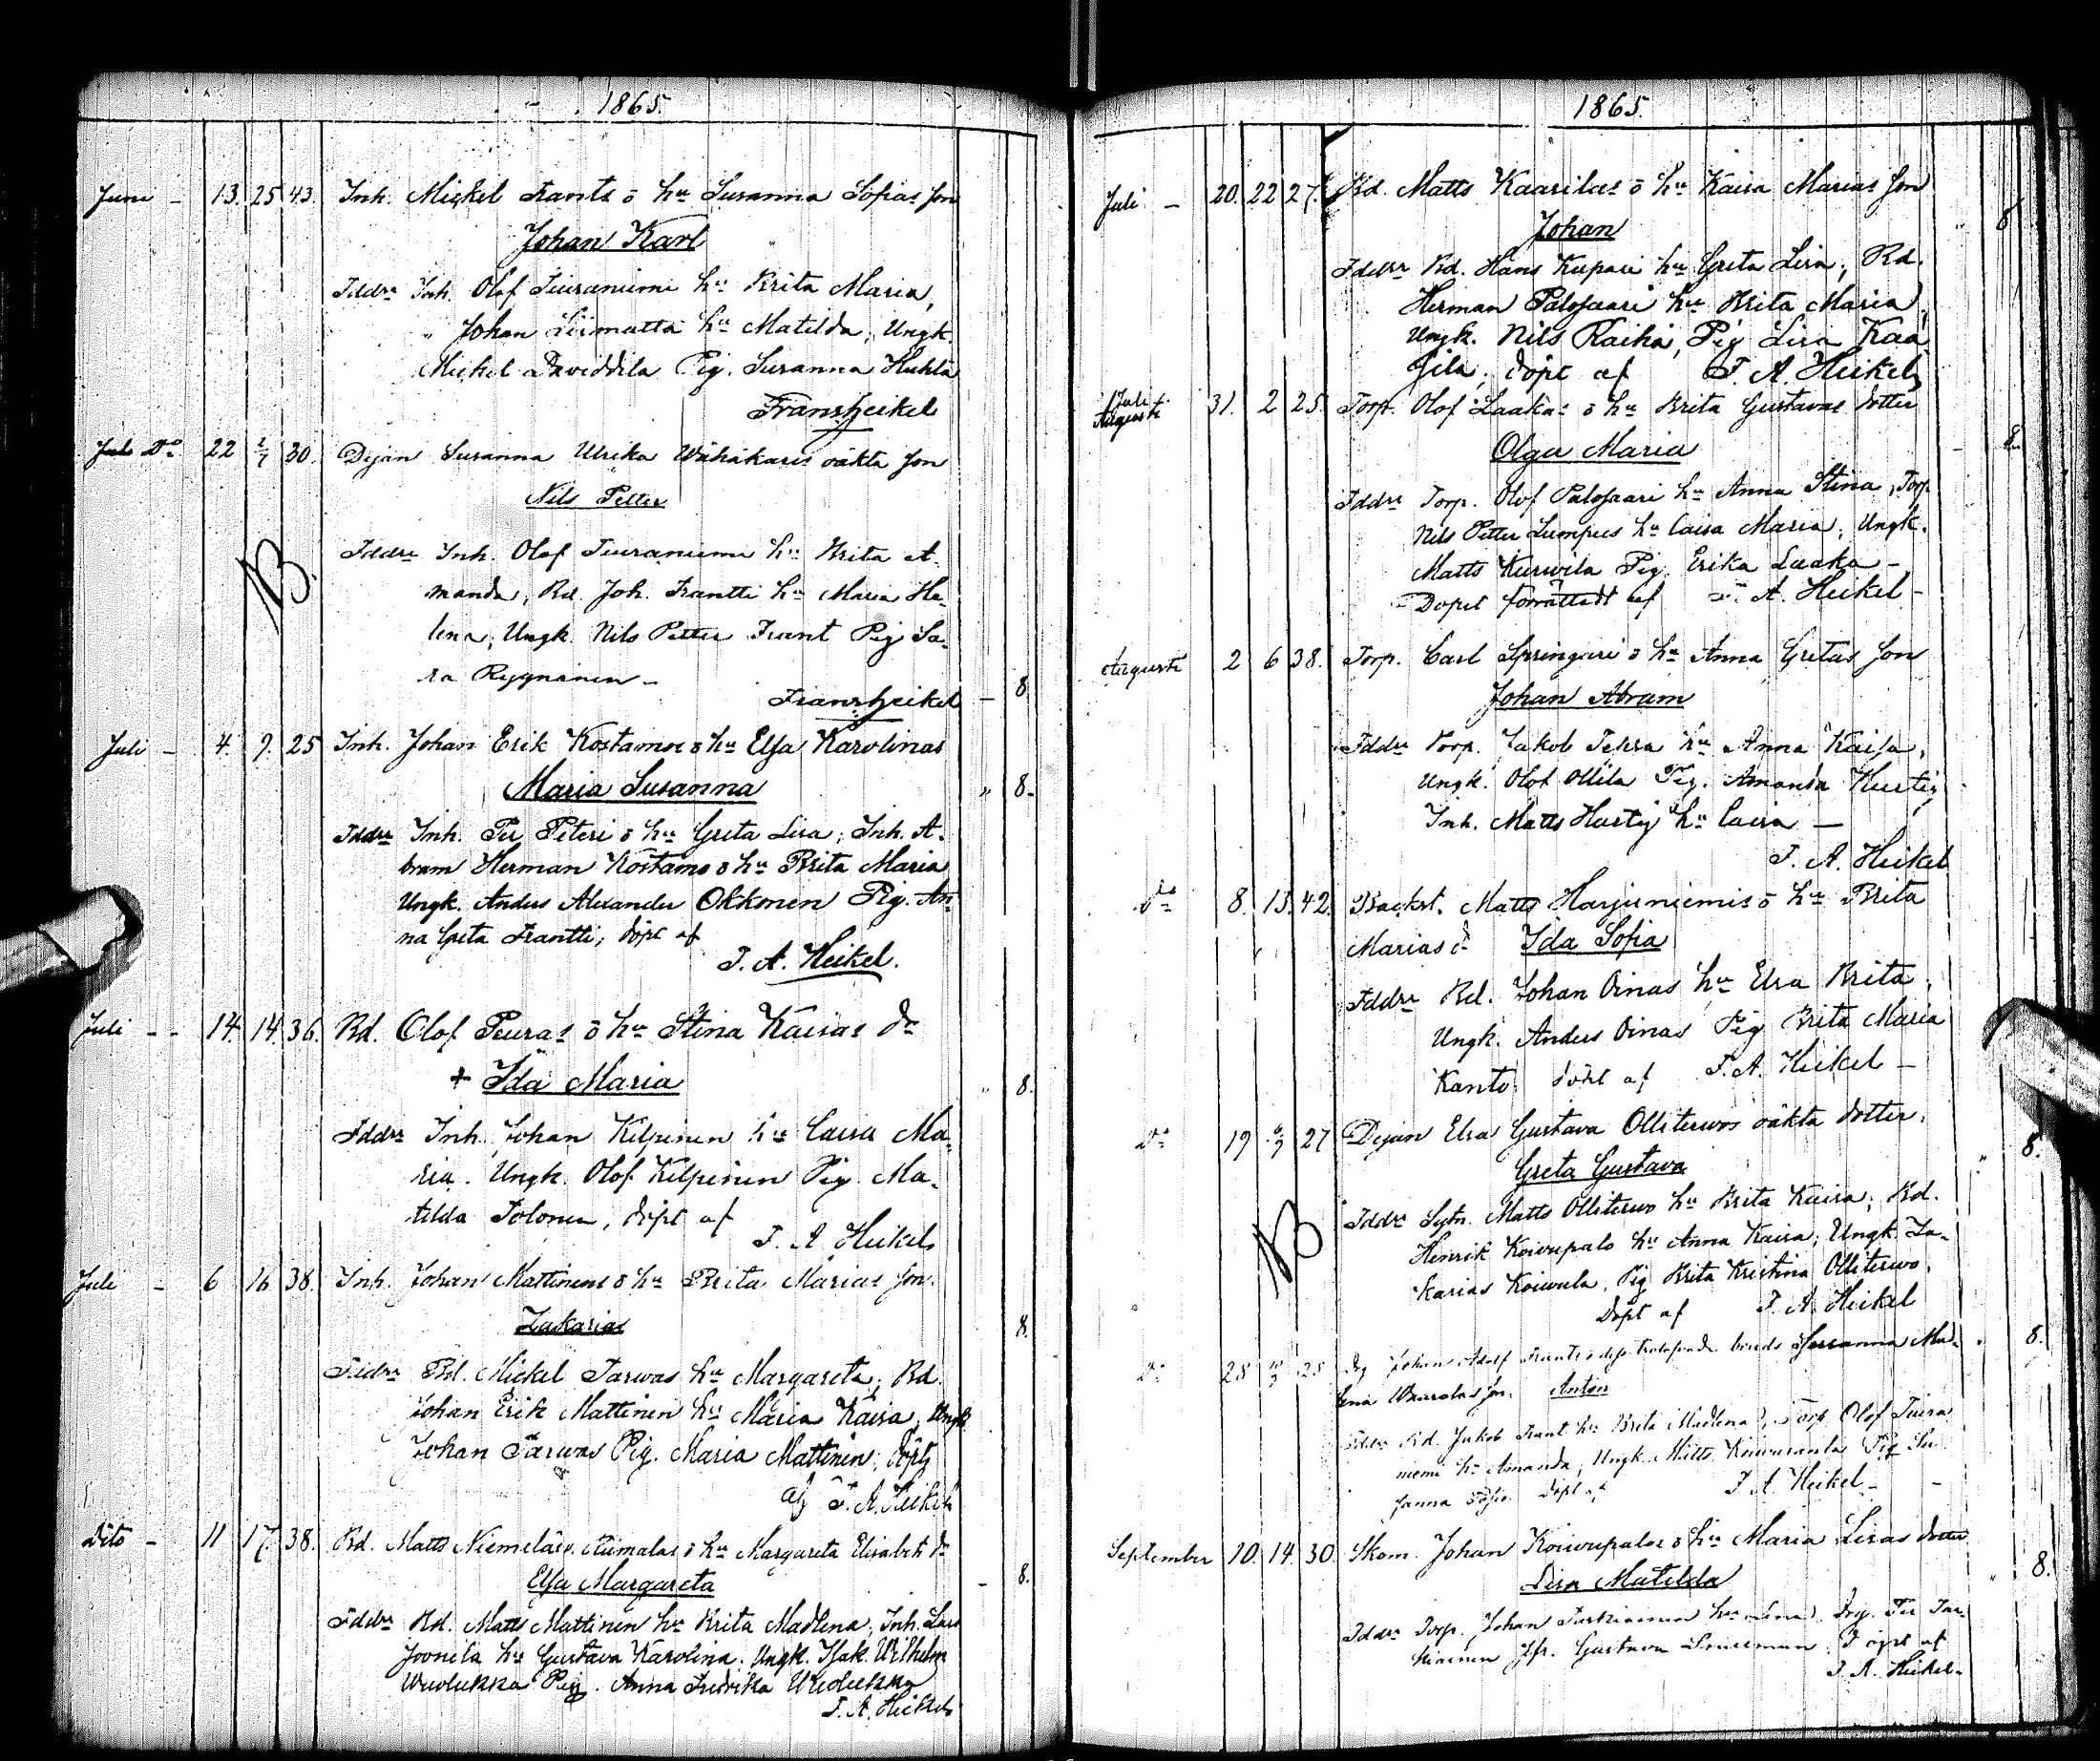 1865.
Juni - 13. 25 43. Inh. Mickel Frants o hu Susanna Sofias son
Johan Karl
Fddr Inh. Olof Tiuraniemi hu Brita Maria,
" Johan Liimatta hu Matilda, Ungk.
Mickel Daviddila Pig. Susanna Huhta
Frans Heikel
Do 22 2/7 30. Dejan Susanna Ulrika Wähäkaris oäkta son
Nils Petter
Fddr Inh. Olof Tiuraniemi hu Brita A-
manda, Bd. Joh. Frantti hu Maria He-
lena, Ungk. Nils Petter Frant Pig Sa-
ra Ryynänen -
Frans Heikel - 8.
B.
Juli - 4. 9. 25 Inh. Johan Erik Kostamos o hu Elsa Karolinas
Maria Susanna " 8.
Fddr Inh. Per Peteri o hu Greta Lisa, Inh. A-
bram Herman Kostamo o hu Brita Maria
Ungk. Anders Alexander Okkonen Pig. An-
na Greta Frantti, döpt af
F. A. Heikel.
Juli - - 14. 14. 36. Bd. Olof Peuras o hu Stina Kaisas dr
+ Ida Maria " 8.
Fddr Inh. Johan Kilpinen hu Caisa Ma-
ria. Ungk. Olof Kilpinen Pig. Ma-
tilda Tolonen, döpt af
F. A Heikel
Juli - 6 16 38. Inh. Johan Mattinens o hu Brita Marias son.
Zakarias 8.
Fddr Bd. Mickel Tarwas hu Margareta, Bd.
Johan Erik Mattinen hu Maria Kaisa, Ungk
Johan Tarwas Pig. Maria Mattinen, döpt
af F. A. Heikel
Dito - 11 17. 38. Bd. Matts Niemeläs o hu Margareta Elisabets dr
Elsa Margareta - 8.
Fddr Bd. Matts Mattinen hu Brita Madlena, Inh. Lars
Joonila hu Gustava Karolina. Ungk. Isak Wilhelm
Wuolukka Pig. Anna Fredrika Wuolukka
F. A. Heikel
1865.
Juli - 20. 22 27. Bd. Matts Kaarilas o hu Kaisa Marias son
Johan " 8
Fddr Bd. Hans Kupari hu Greta Lisa, Bd.
Herman Palosaari hu Brita Maria,
Ungk. Nils Raikia, Pig Lisa Kaa
döpt af F. A. Heikel
Juli Augusti 31. 2 25. Torp. Olof Laakas o hu Brita Gustavas dotter
Olga Maria - 8.
Fddr Torp. Olof Palosaari hu Anna Stina, Torp.
Nils Petter Lumpus hu Caisa Maria, Ungk.
Matts Kurwila Pig. Erika Laaka -
Dopet förrättadt af F. A. Heikel -
Augusti 2 6 38. Torp. Carl Springari o hu Anna Gretas son
Johan Abram
Fddr Torp. Jakob Tehra hu Anna Kaisa,
Ungk. Olof Ollila Pig. Amanda Hurtig
Inh. Matts Hurtig hu Caisa -
F. A. Heikel
Do 8. 13. 42. Backst. Matts Harjuniemis o hu Brita
Marias d. Ida Sofia
Fddr Bd. Johan Oinas hu Elsa Brita,
Ungk. Anders Oinas Pig Brita Maria
Kanto döpt af F. A. Heikel -
Do 19 27 Dejan Elsa Gustava Olliterwos oäkta dotter.
Greta Gustava " 8.
B
Fddr Sytn. Matts Olliterwo hu Brita Kaisa, Bd.
Henrik Koiwupalo hu Anna Kaisa, Ungk. Za-
karias Koiwula, Pig Brita Kristina Olliterwo,
Döpt af F. A. Heikel
Do 28 25 Drg Johan Adolf Frants o dess trolofvade bruds Susanna Mad- 8.
lena son. Anton
Fddr Bd. Jakob Frant hu Brita Madlena, Torp. Olof Tiura
niemi hu Amanda, Ungk. Matts Pig Su
sanna Sofia. Döpt af F. A. Heikel -
September 10. 14. 30. Skom. Johan Koiwupalos o hu Maria Lisas dotter
Lisa Matilda " 8.
Fddr Torp. Johan Tarkiainen hu Lena. Drg. Per Tar-
kiainen Jfr. Gustava döpt af
F. A. Heikel.